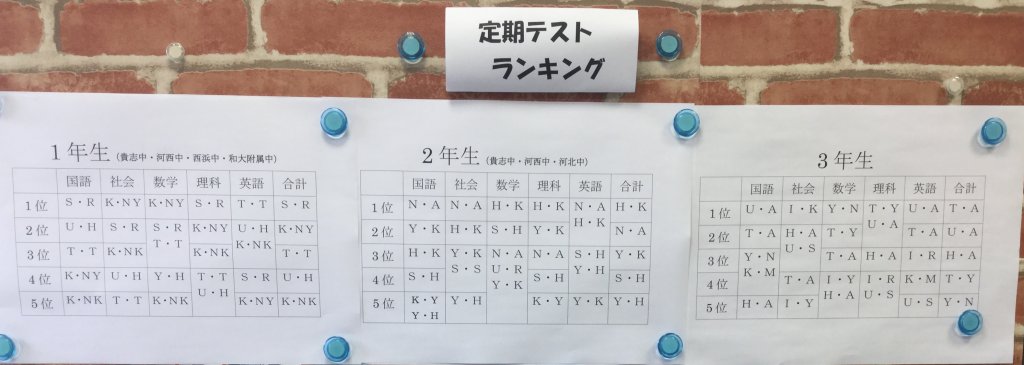 定期テスト
ランキング
1年生（貴志中・河西中・西浜中・和大附属中）
国語 社会 数学 理科 英語 合計
1位 S・R K・NY K・NY S・R T・T S・R
2位 U・H S・R S・R K・NY U・H K・NY
3位 T・T K・NK T・T K・NK K・NK T・T
4位 K・NY U・H Y・H T・T S・R U・H
5位 K・NK T・T K・NK U・H K・NY K・NK
2年生（貴志中・河西中・河北中）
国語 社会 数学 理科 英語 合計
1位 N・A N・A H・K H・K N・A H・K
2位 Y・K H・K S・H Y・K H・K N・A
3位 H・K Y・K N・A N・A S・H Y・K
4位 S・H S・S U・R S・H Y・H S・H
Y・K
5位 K・Y Y・H K・Y Y・K Y・H
Y・H
3年生
国語 社会 数学 理科 英語 合計
1位 U・A I・K Y・N T・Y U・A T・A
U・A
2位 T・A H・A T・Y T・A U・A
U・S
3位 Y・N T・A H・A I・R H・A
K・M
4位 T・A I・Y I・R K・M T・Y
H・A U・S
5位 H・A I・Y U・S Y・N